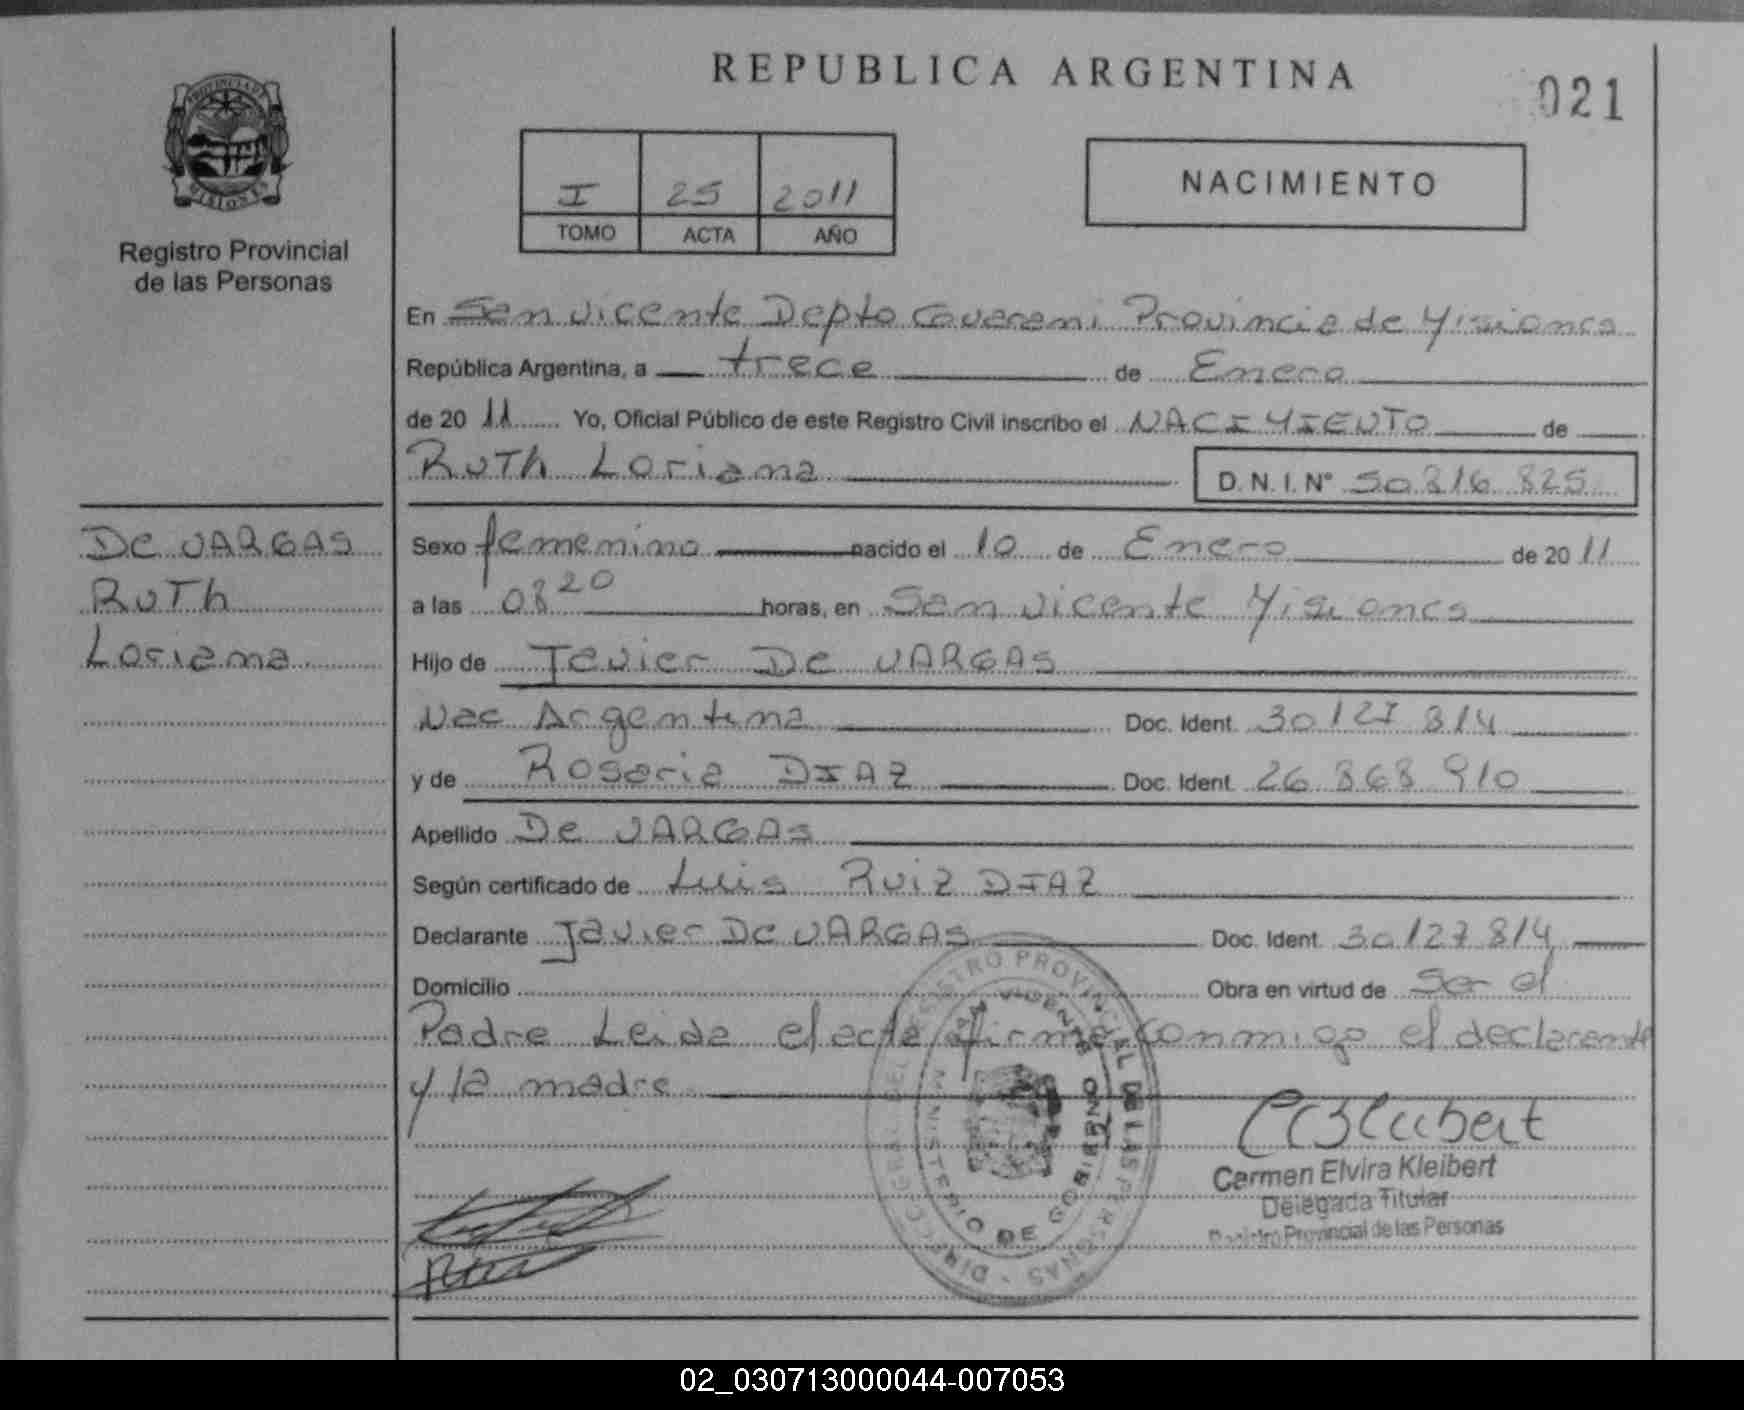 REPUBLICA ARGENTINA
021
PROVINCIA DE
MISIONES
Registro Provincial
de las Personas
I 25 2011
TOMO ACTA AÑO
NACIMIENTO
En San Vicente Depto Guarani Provincia de Misiones
República Argentina, a trece de Enero
de 20 11 Yo, Oficial Público de este Registro Civil inscribo el NACIMIENTO de
Ruth Loriana D. N. I. Nº 50 816 825
De VARGAS
Ruth
Loriana
Sexo femenino nacido el 10 de Enero de 20 11
a las 08 20 horas, en San Vicente Misiones
Hijo de Javier De VARGAS
Nac Argentina Doc. Ident. 30 127 814
y de Rosaria DIAZ Doc. Ident. 26 868 910
Apellido De VARGAS
Según certificado de Luis Ruiz DIAZ
Declarante Javier De VARGAS Doc. Ident. 30 127 814
Domicilio Obra en virtud de Ser el
Padre Leida el acta firma conmigo el declarante
y la madre
Carmen Elvira Kleibert
Delegada Titular
Registro Provincial de las Personas
REGISTRO PROVINCIAL DE LAS PERSONAS
MINISTERIO DE GOBIERNO
02_030713000044-007053